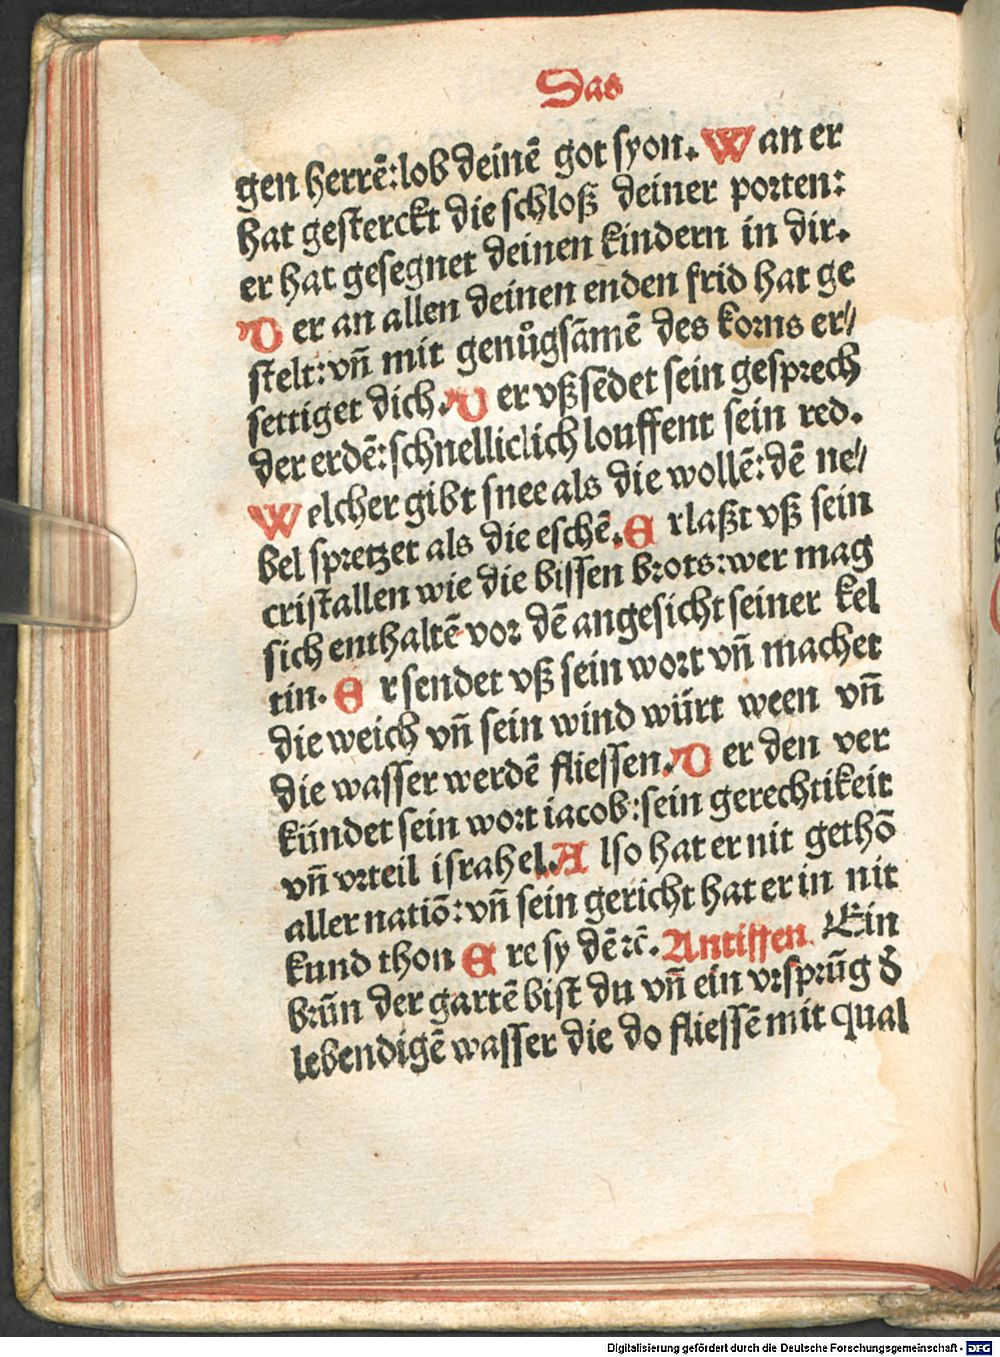 Das
gen herrē: lob deinē got syon. Wan er
hat gesterckt die schloß deiner porten:
er hat gesegnet deinen kindern in dir.
Der an allen deinen enden frid hat ge
stelt: vñ mit genůgsāmē des korns er⸗
settiget dich. Der vßsēdet sein gesprech
der erdē: schnelliclich louffent sein red.
Welcher gibt snee als die wollē: dē ne⸗
bel spretzet als die eschē. Erlaßt vß sein
cristallen wie die bissen brots: wer mag
sich enthaltē vor dē angesicht seiner kel
tin. Er sendet vß sein wort vñ machet
die weich vñ sein wind würt ween vñ
die wasser werdē fliessen. Der den ver
kündet sein wort iacob: sein gerechtikeit
vñ vrteil israhel. Also hat er nit gethō
aller natiō: vñ sein gericht hat er in nit
kund thon Ere sy dē ⁊c̄. Antiffen Ein
brūn der gartē bist du vñ ein vrsprūg d̄
lebendigē wasser die do fliessē mit qual
Digitalisierung gefördert durch die Deutsche Forschungsgemeinschaft - DFG